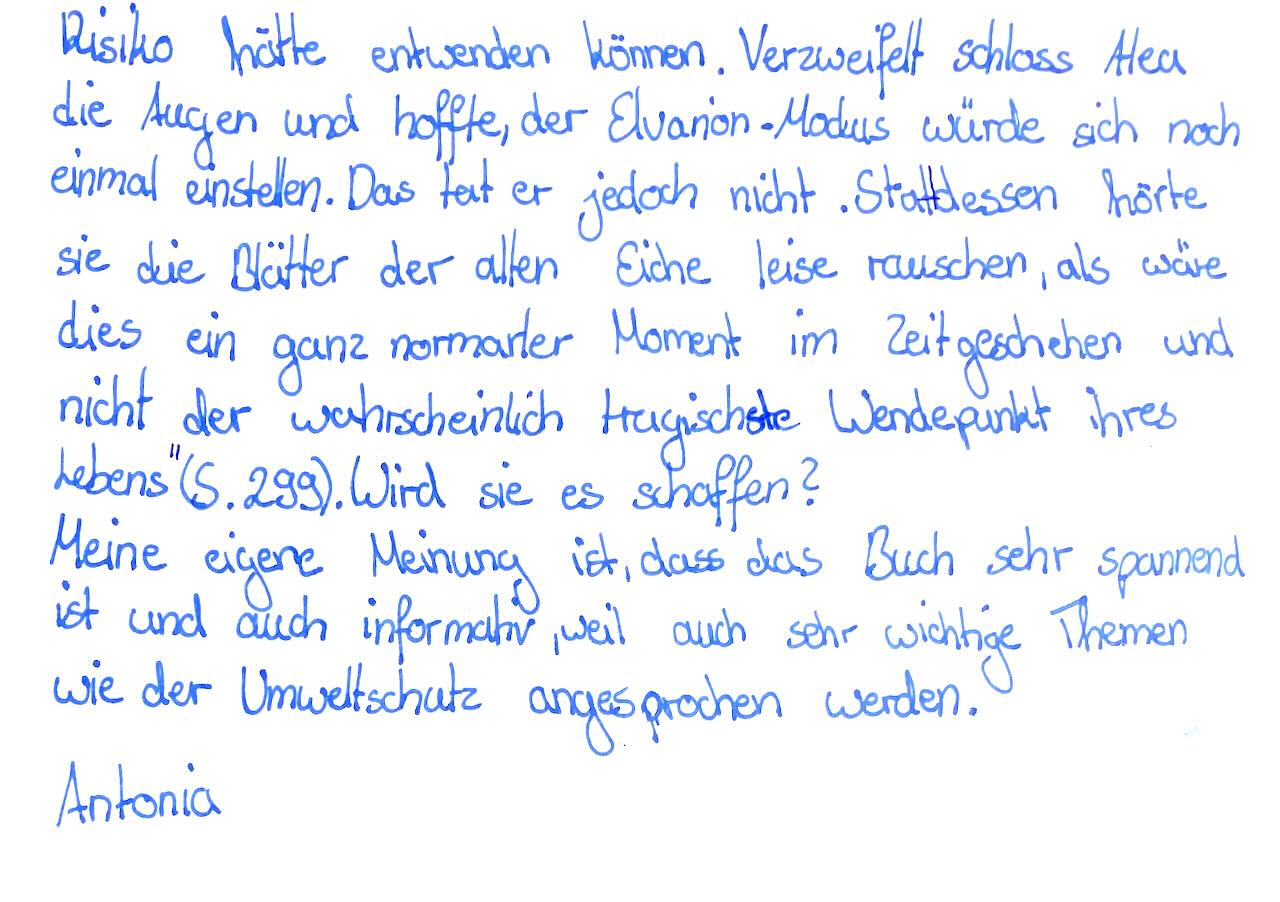 Risiko hätte entwenden können. Verzweifelt schloss Alea
die Augen und hoffte, der Elvarion-Modus würde sich noch
einmal einstellen. Das tat er jedoch nicht. Stattdessen hörte
sie die Blätter der alten Eiche leise rauschen, als wäre
dies ein ganz normarler Moment im Zeitgeschehen und
nicht der wahrscheinlich tragischste Wendepunkt ihres
Lebens" (S. 299). Wird sie es schaffen?
Meine eigene Meinung ist, dass das Buch sehr spannend
ist und auch informativ, weil auch sehr wichtige Themen
wie der Umweltschutz angesprochen werden.
Antonia